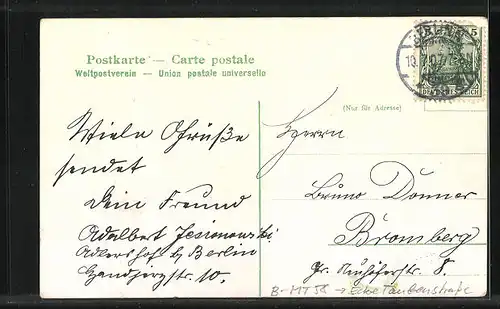 Postkarte — Carte postale
Weltpostverein — Union postale universelle
BERLIN
5
(Nur für Adresse)
Viele Grüße
sendet
Dein Freund
Adalbert Jesionowski
Adlershof b/ Berlin
10.
Herrn
Bruno Donner
Bromberg
Gr. 8.
B-MT58 → Ecke Taubenstraße